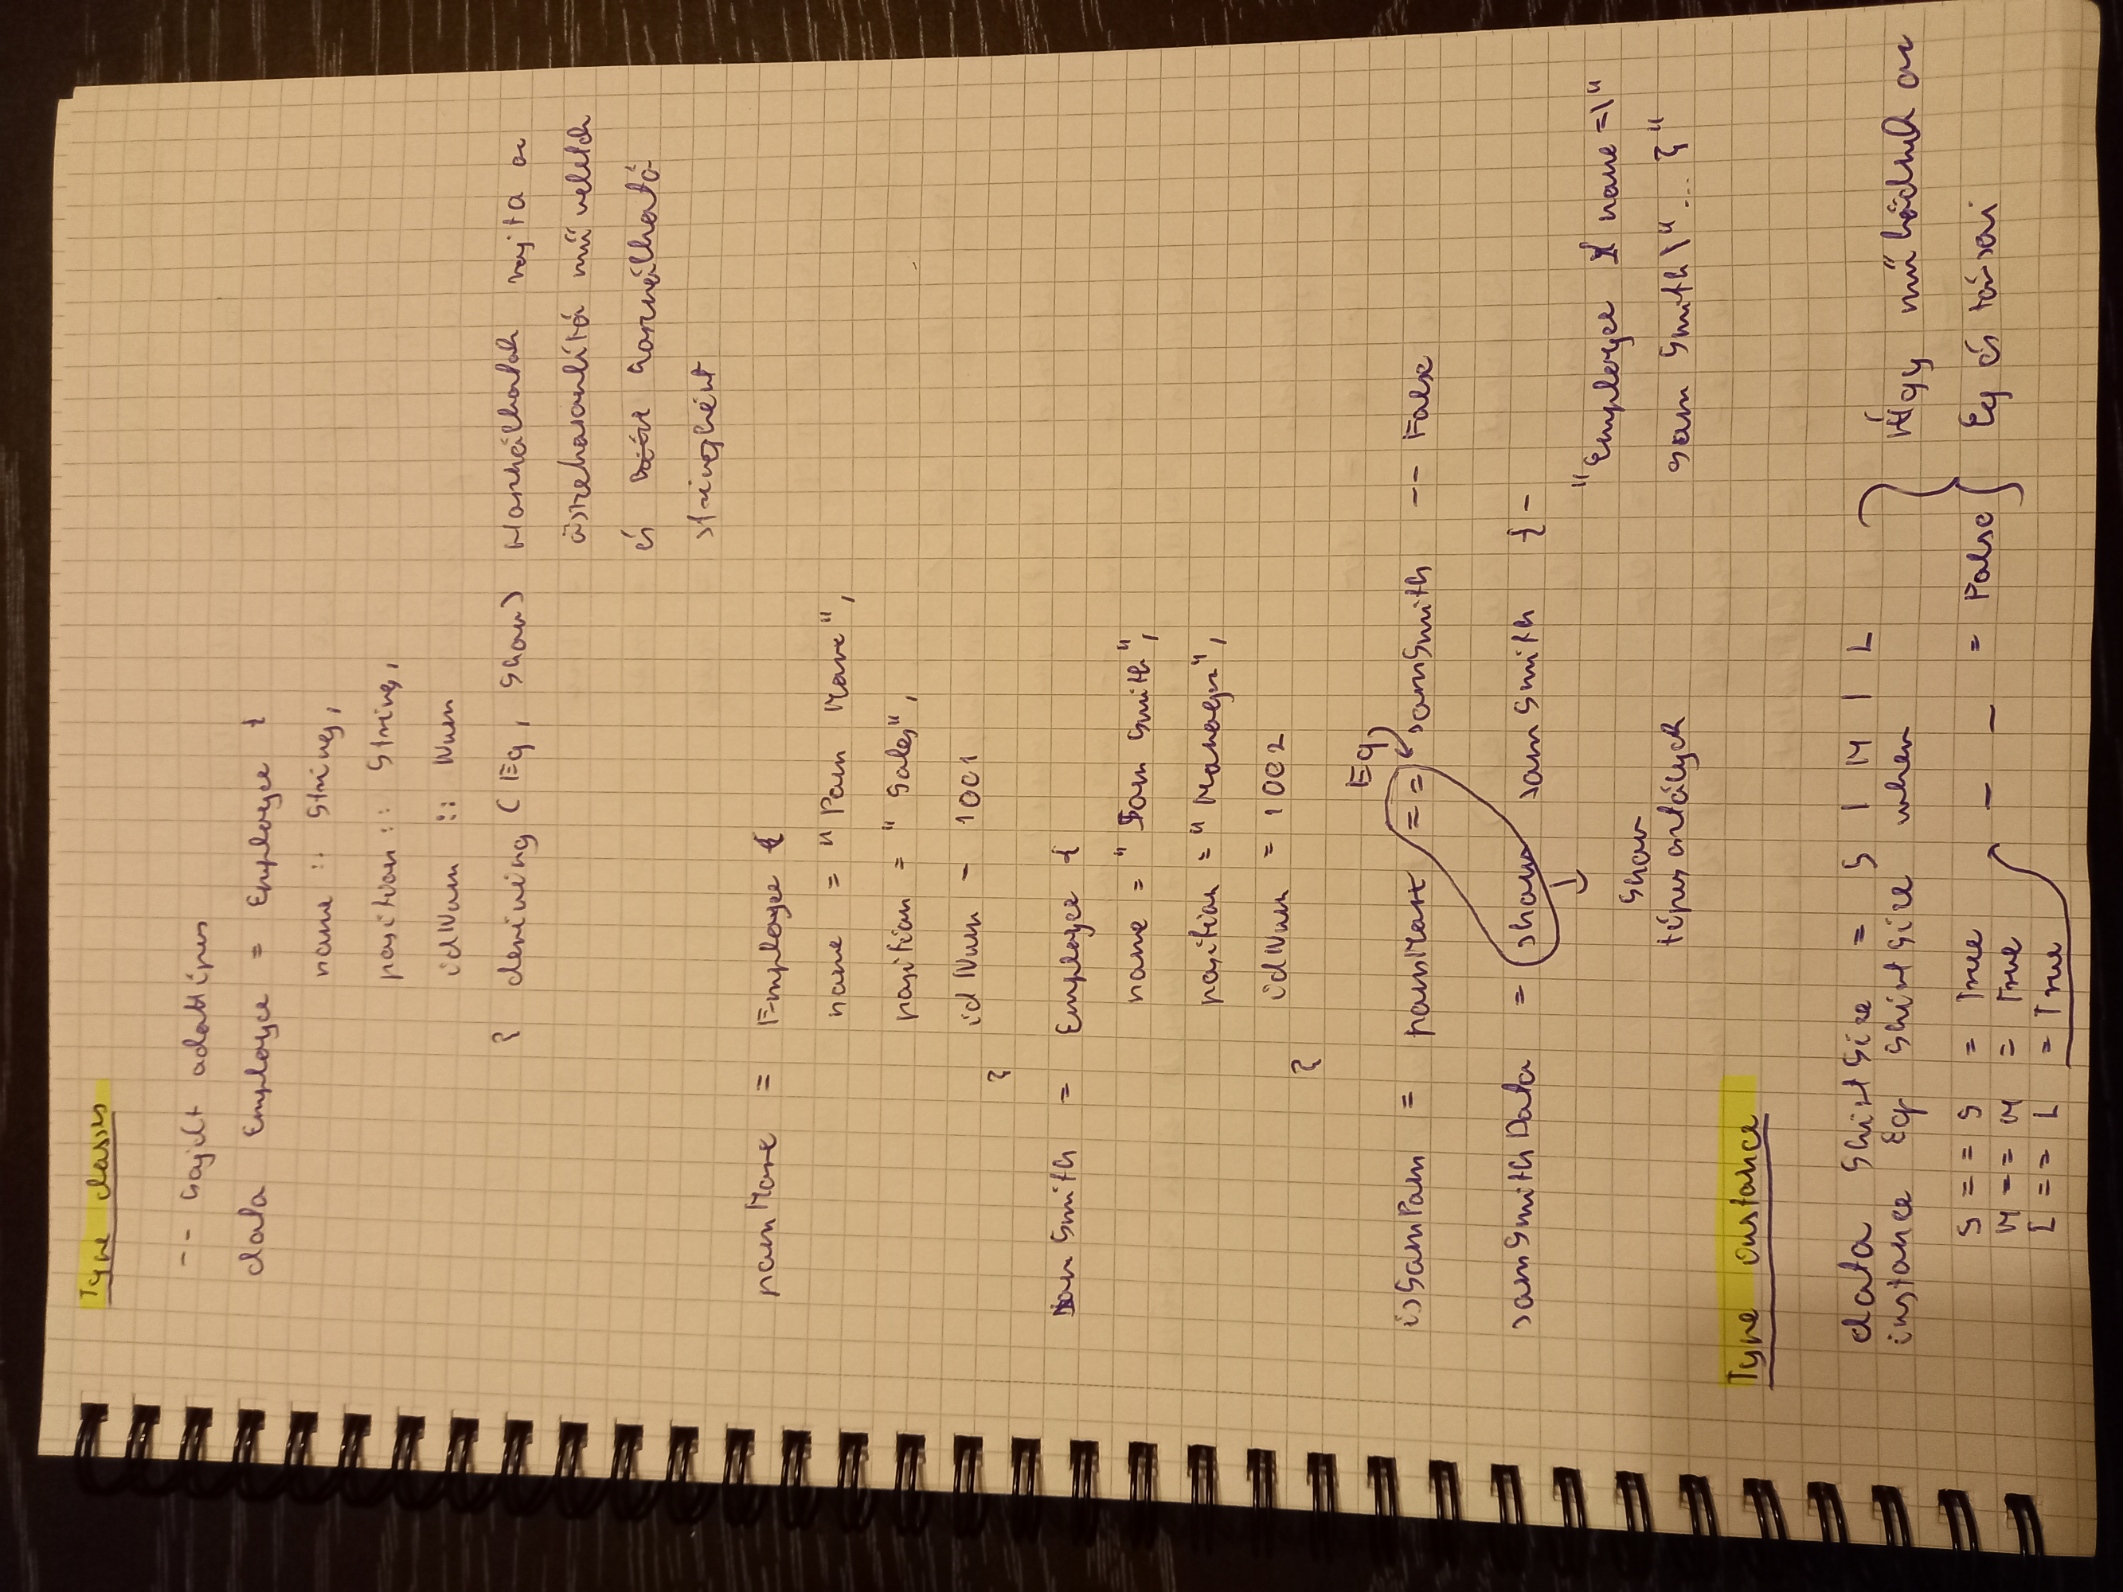 Type classes
-- Saját adattípus
data Employee = Employee {
name :: String,
position :: String,
idNum :: Num
} deriving (Eq, Show) Használhatók rajta az
összehasonlító műveletek
és használható
stringként
pamMore = Employee {
name = "Pam More",
position = "Sales",
idNum = 1001
}
samSmith = Employee {
name = "Sam Smith",
position = "Manager",
idNum = 1002
}
Eq
isSamPam = pamMore == samSmith -- False
samSmithData = show samSmith {-
"Employee { name =\"
Sam Smith\" ... }"
Show
típusosztályok
Type instance
data ShirtSize = S | M | L
instance Eq ShirtSize where
Így működnek az
S == S = True
_ _ = False
Eq és társai
M == M = True
L == L = True